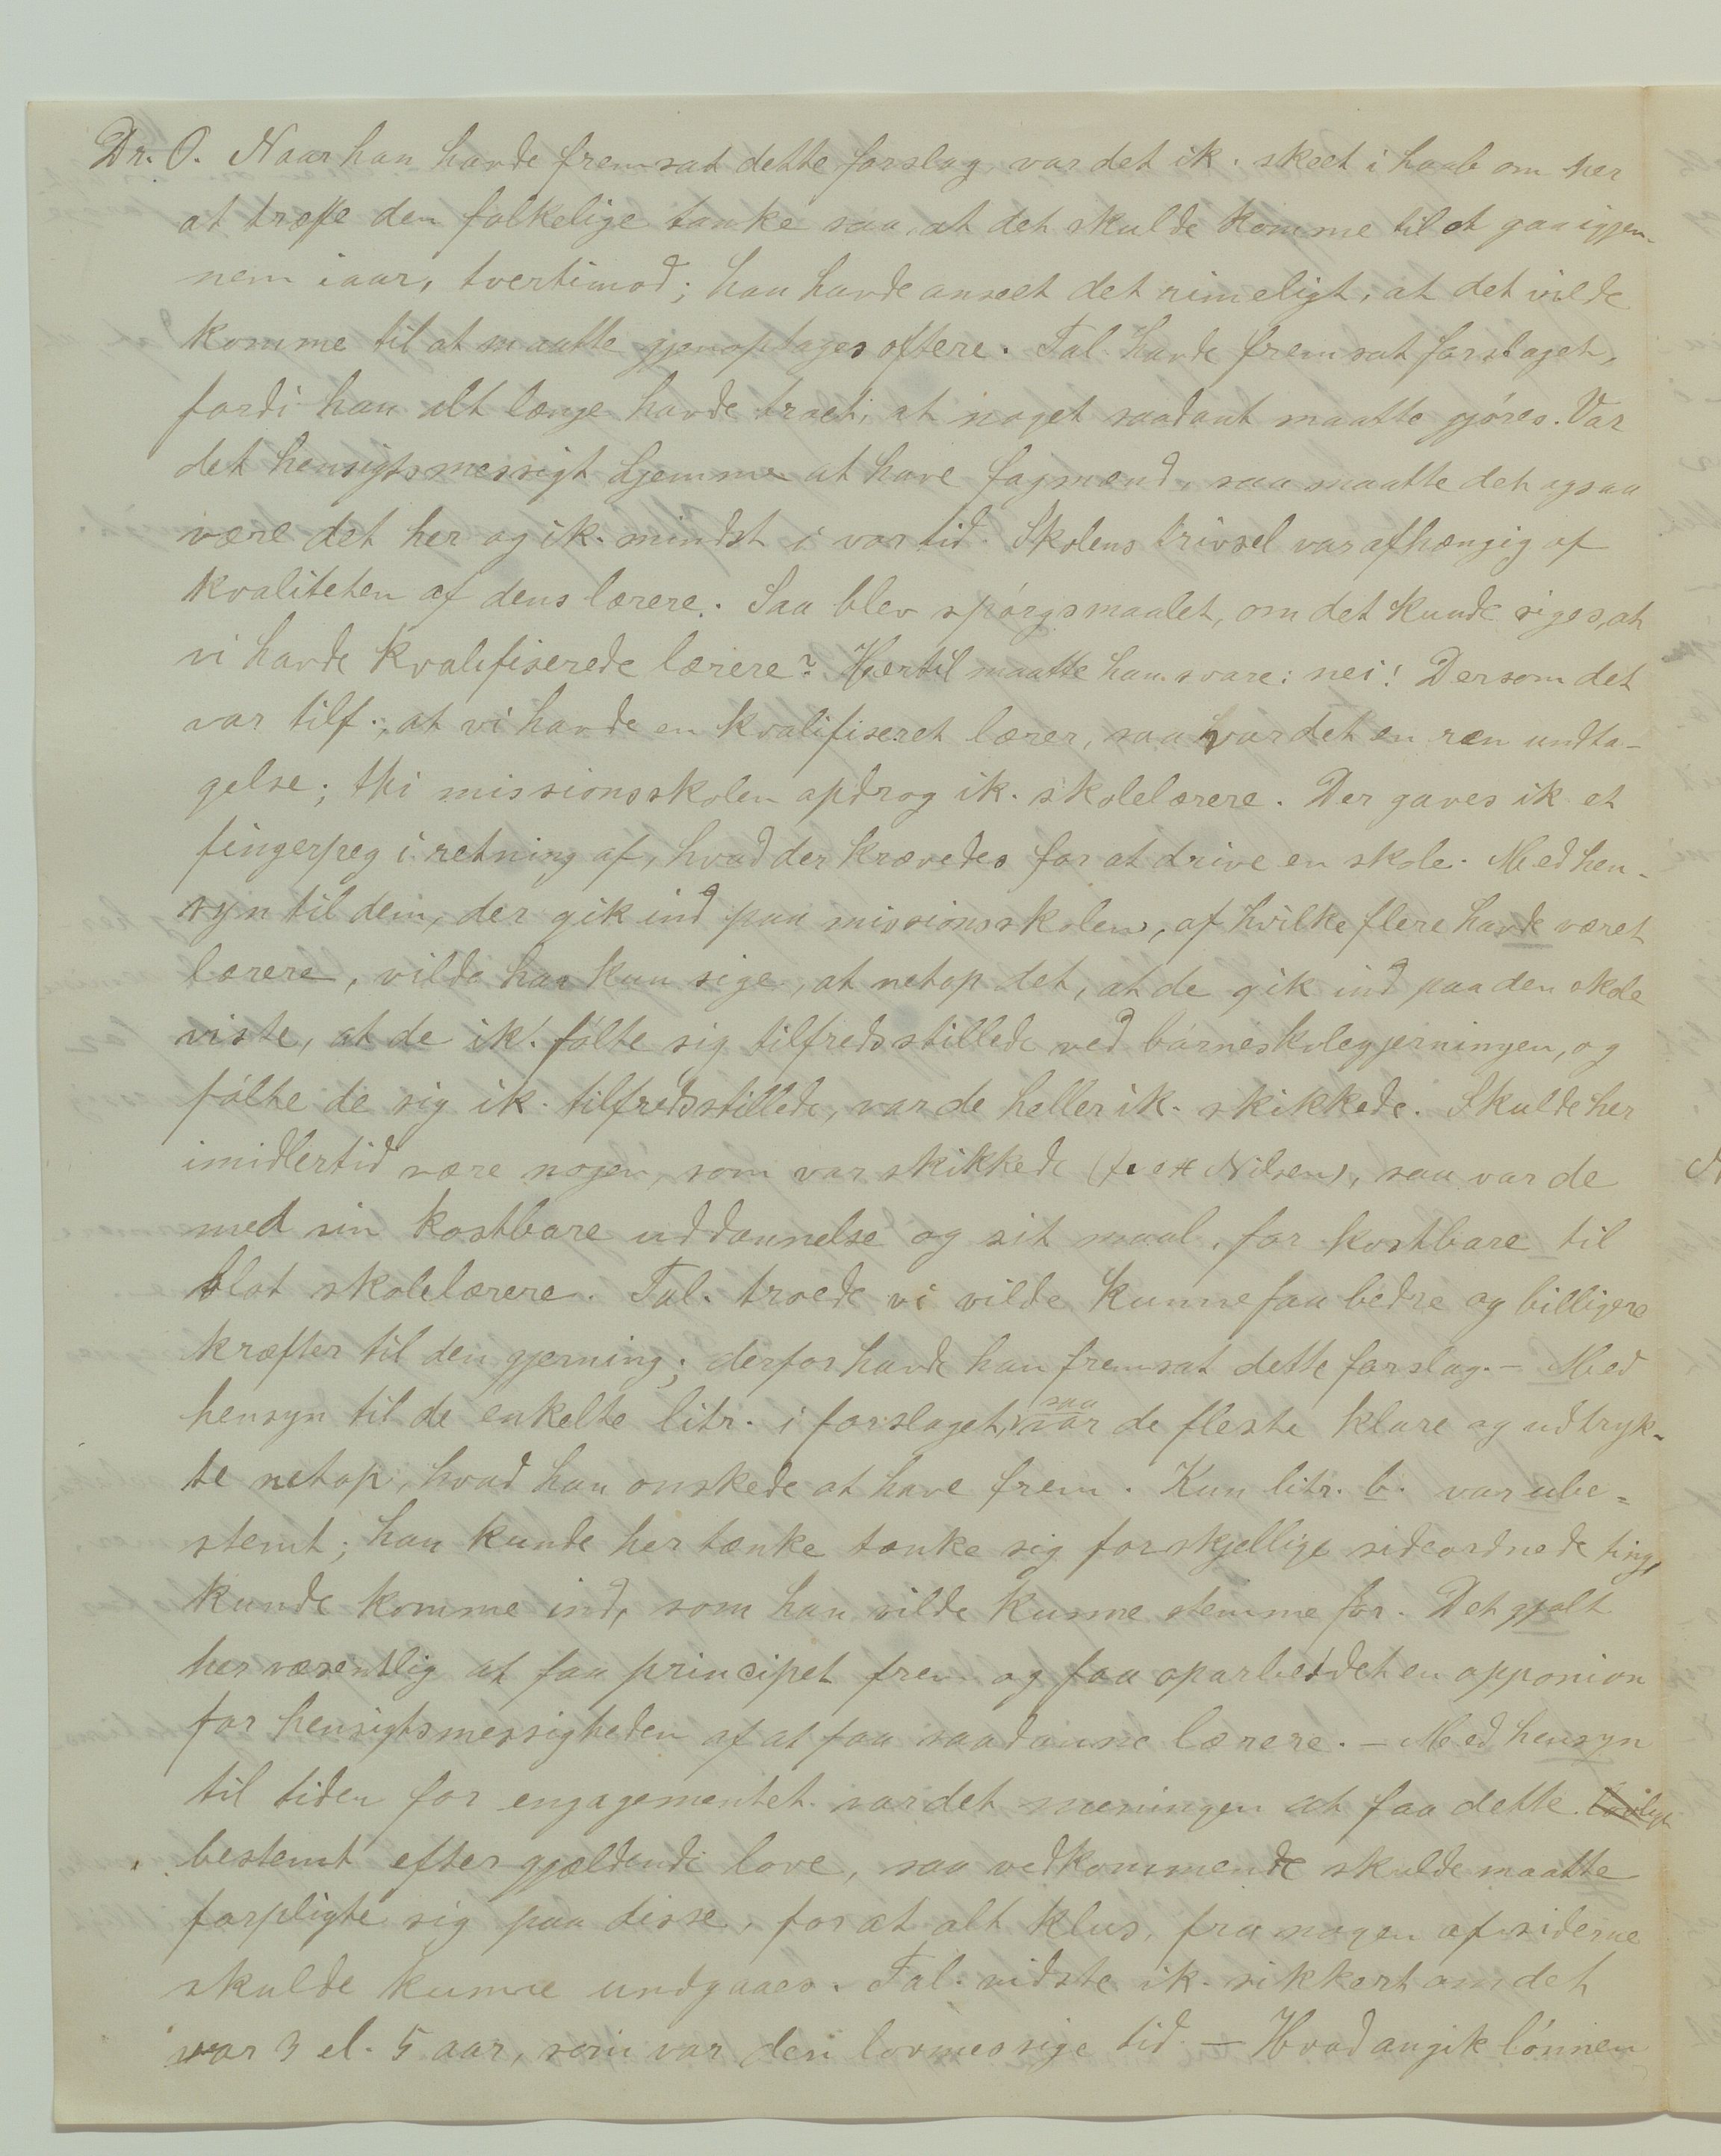 Dr. O. Naar han havde fremsat dette forslag, var det ik. skeet i haab om her
at træffe den folkelige tanke saa, at det skulde komme til at gaa igjen-
nem iaar, tvertimod; han havde anseet det rimeligt, at det vilde
komme til at maatte gjenoptages oftere. Tal. havde fremsat forslaget,
fordi han alt længe havde troet, at noget saadant maatte gjóres. Var
det hensigtsmessigt hjemme at have fagmænd, saa maatte det ogsaa
være det her og ik. mindst i vor tid. Skolens trivsel var afhængig af
kvaliteten af dens lærere. Saa blev spórgsmaalet, om det kunde siges, at
vi havde kvalifiserede lærere? Hertil maatte han svare: nei! Dersom det
var tilf., at vi havde en kvalifiseret lærer, saa var det en ren undta-
gelse; thi missionsskolen opdrog ik. skolelærere. Der gaves ik et
fingerpeg i retning af, hvad der krævedes for at drive en skole. Med hen-
syn til dem, der gik ind paa missionsskolen, af hvilke flere havde været
lærere, vilde han kun sige, at netop det, at de gik ind paa den skole
viste, at de ik. fólte sig tilfredsstillede ved bárneskolegjerningen, og
fólte de sig ik. tilfredsstillede, var de heller ik. skikkede. Skulde her
imidlertid være nogen, som var skikkede (f. ex Nilsen), saa var de
med sin kostbare uddannelse og sit maal, for kostbare til
blot skolelærere. Tal. troede vi vilde kunne faa bedre og billigere
kræfter til den gjerning; derfor havde han fremsat dette forslag. – Med
hensyn til de enkelte litr. i forslaget, saa var de fleste klare og udtryk-
te netop, hvad han onskede at have frem. Kun litr. b. var ube-
stemt; han kunde her tænke tænke sig forskjellige sideordnede ting,
kunde komme ind, som han vilde kunne stemme for. Det gjalt
her væsentlig at faa principet frem og faa oparbeidet en opponion
for hensigtsmessigheden af at faa saadanne lærere. – Med hensyn
til tiden for engagementet var det meningen at faa dette
bestemt efter gjældende love, saa vedkommende skulde maatte
forpligte sig paa disse, for at alt klus, fra nogen af siderne
skulde kunne undgaaes. Tal. vidste ik. sikkert om det
var 3 el. 5 aar, som var den lovmessige tid. – Hvad angik lónnen